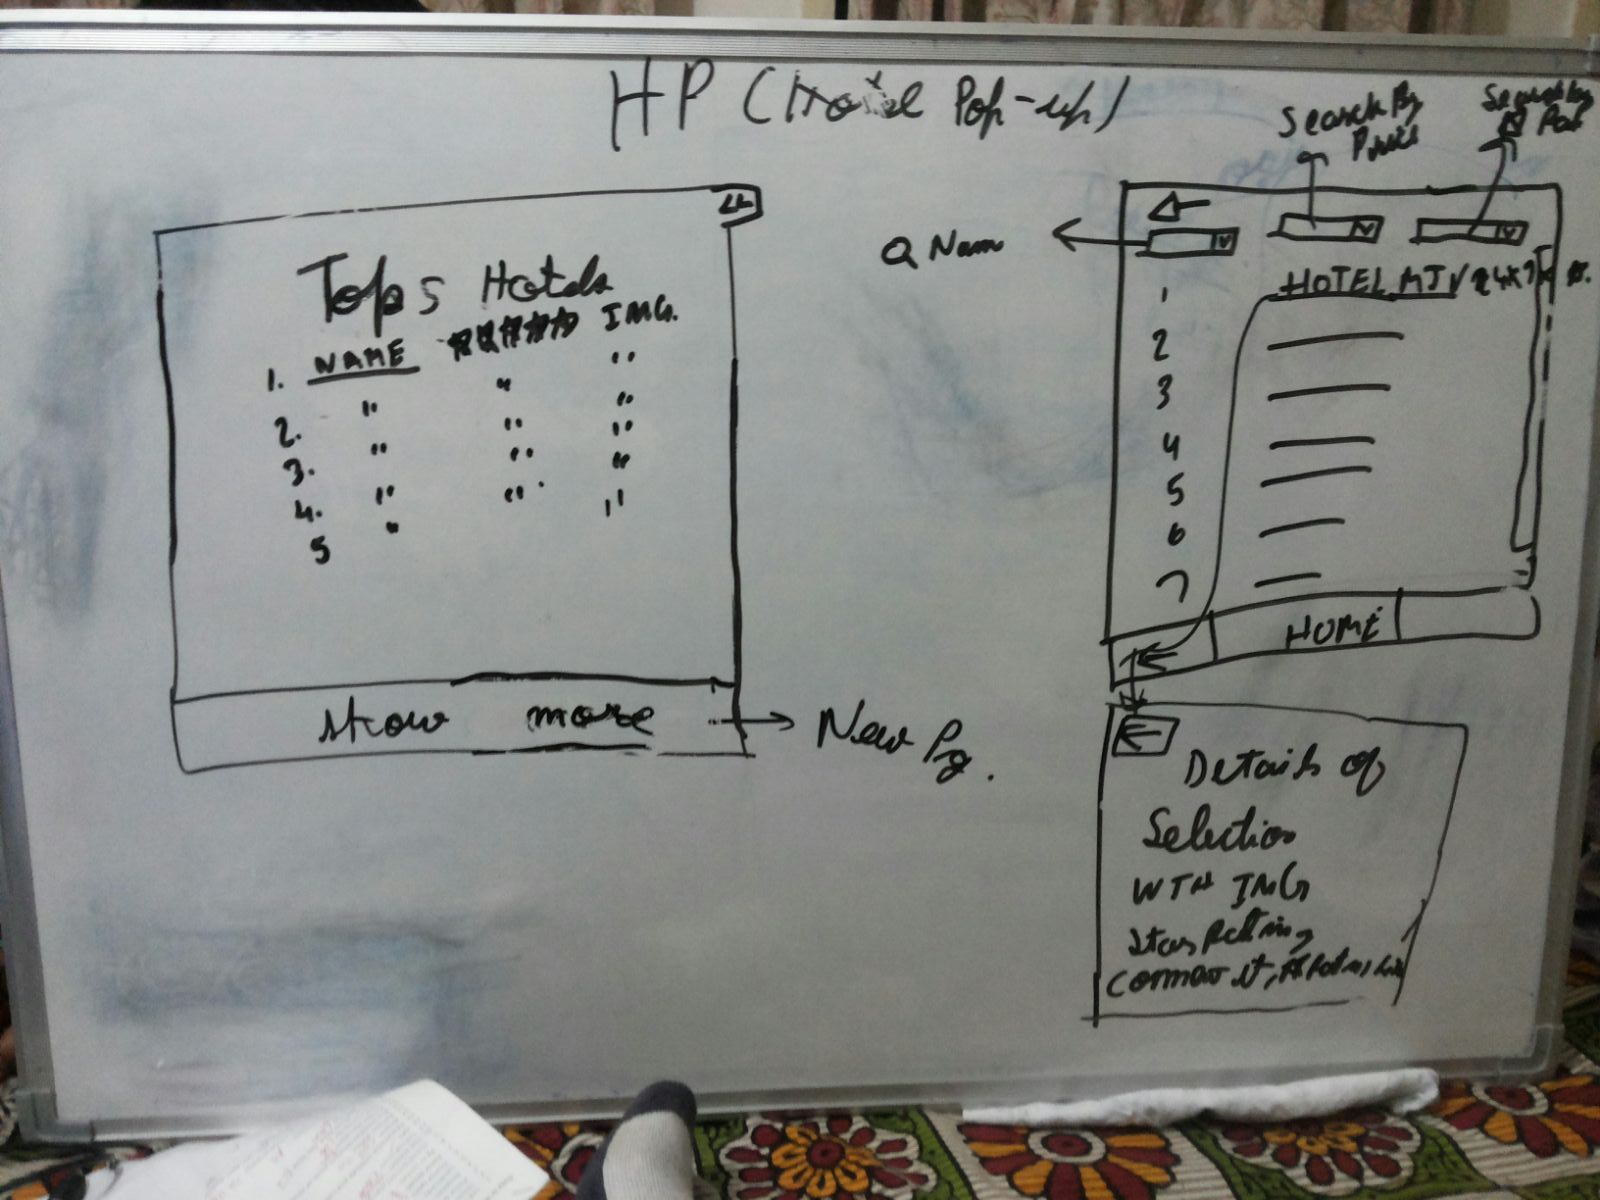 HP (Hotel Pop-up)
Top 5 Hotels
IMG.
1. NAME
"
"
"
2. "
"
"
3. "
"
"
4. "
"
"
5 "
"
"
show more
New Pg.
Search By
Price
Search by
Q Nam
1 HOTEL MJV 24x7
2
3
4
5
6
7
HOME
Details of
Selection
WTH IMG
Star Rating